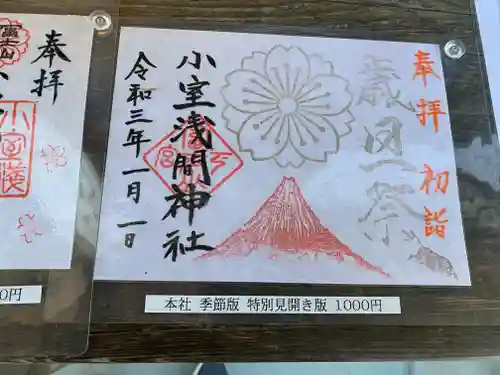 奉拝 初詣
歳旦祭
小室浅間神社
令和三年一月一日
本社 季節版 特別見開き版 1000円
奉拝
富士山
小室浅
0円